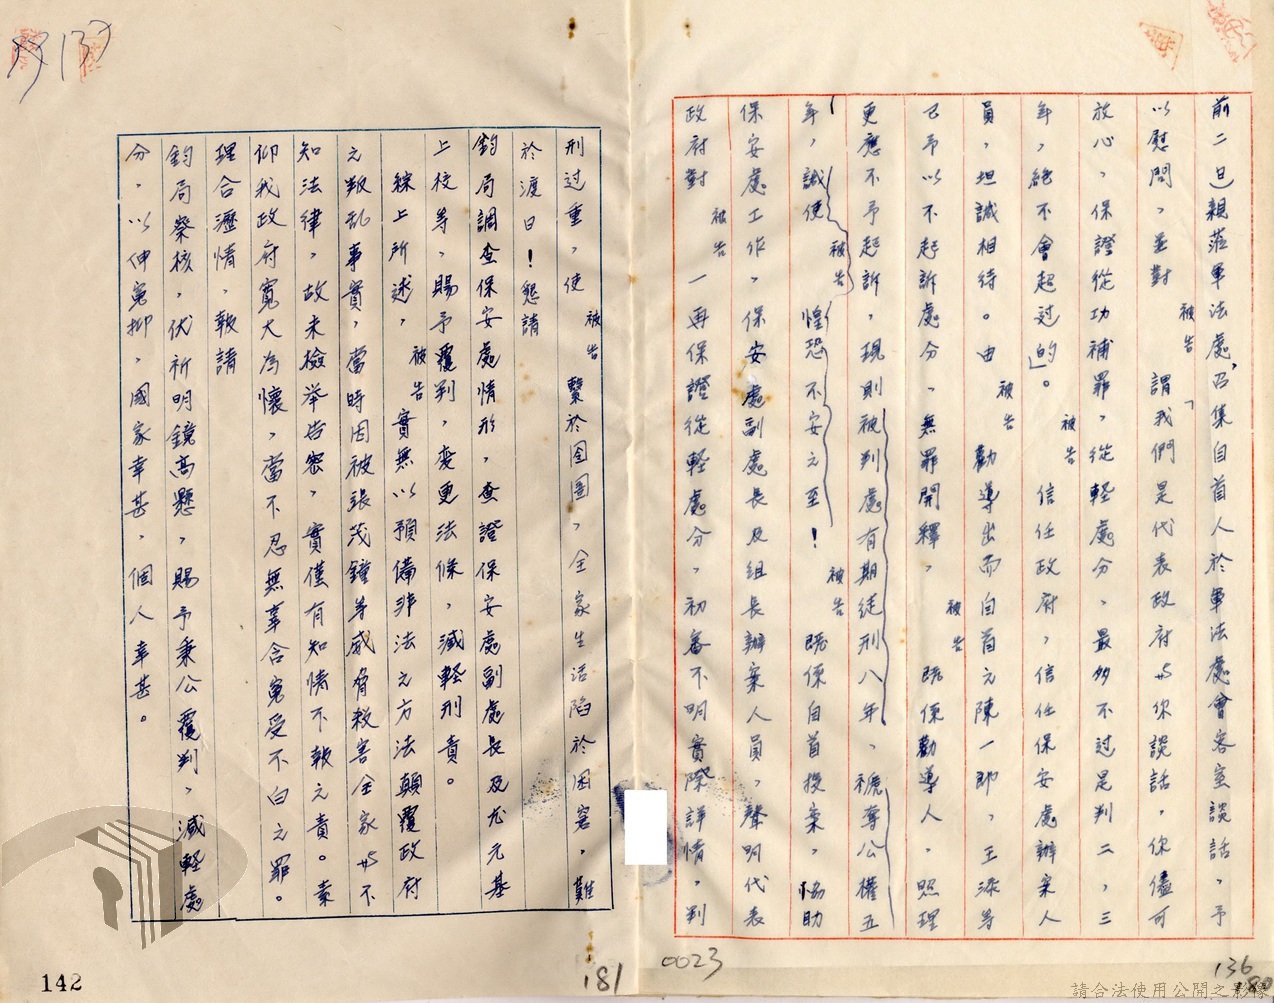 前二日)親蒞軍法處,召集自首人於軍法處會客室談話,予
以慰問,並對被告「謂我們是代表政府與你談話,你儘可
放心,保證從功補罪,從軽處分,最多不过是判二,三
年,絕不會超过的」。被告信任政府,信任保安處辦案人
員,坦誠相待。由被告勸導出而自首之陳一郎,王添等
已予以不起訴處分,無罪開釋,被告既係勸導人,照理
更應不予起訴,現則被判處有期徒刑八年,褫奪公權五
年,誠使被告惶恐不安之至!被告既係自首投案,協助
保安處工作,保安處副處長及組長辦案人員,聲明代表
政府對被告一再保證從軽處分,初審不明實際詳情,判
刑过重,使被告繫於囹圄,全家生活陷於困窘,難
於渡日!懇請
鈞局調查保安處情形,查證保安處副處長及尤元基
上校等,賜予覆判,变更法條,減軽刑責。
綜上所述,被告實無以預備非法之方法顛覆政府
之叛乱事實,當時因被張茂鐘等威脅殺害全家與不
知法律,故未檢举告密,實僅有知情不報之責。素
仰我政府寬大為懷,當不忍無辜含寃受不白之罪。
理合瀝情,報請
鈞局察核,伏祈明鏡高懸,賜予秉公覆判,減軽處
分,以伸寃抑,國家幸甚,個人幸甚。
137
142
181
0023
136
180
請合法使用公開之影像